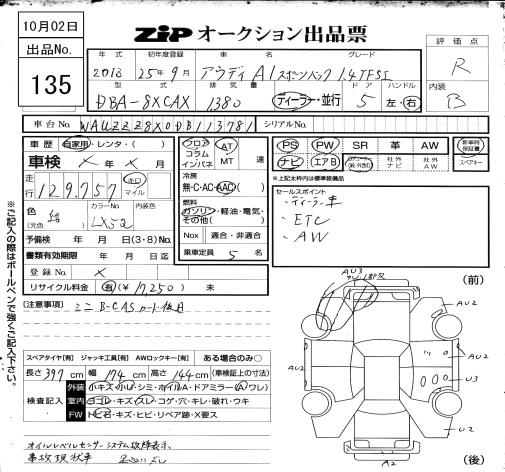 10月02日
出品No.
135
ZIP オークション出品票
評価点
R
内装
B
年式 初年度登録 車名 グレード
2013 25年9月 アウディA1スポーツバック 1.4TFSI
型式 排気量 ドア ハンドル
DBA-8XCAX 1380 ディーラー・並行 5 左・右
車台No. WAUZZZ8X0DB113781 シリアルNo.
車歴 自家用・レンタ・( )
車検 × 年 × 月
走行 129,757 キロ マイル
色 カラーNo. 内装色
紺 LX5Q
(元色)
予備検 年 月 日(3・8)No.
書類有効期限 年 月 日迄
登録No. ×
リサイクル料金 有(¥17,250) 未
フロア コラム インパネ AT MT 速
冷房
無・C・AC・AAC( )
燃料
ガソリン・軽油・電気・その他( )
Nox 適合・非適合
乗車定員 5 名
PS PW SR 革 AW 新車時保証書
ナビ エアB 社外ナビ 社外AW スペアキー
※上記太枠内は標準装備品
セールスポイント
・ディーラー車
・ETC
・AW
[注意事項] ミニB-CASカード付
スペアタイヤ[有] ジャッキ工具[有] AWロックキー[有] ある場合のみ○
長さ397cm 幅174cm 高さ144cm(車検証上の寸法)
検査記入
外装 小キズ・小U・シミ・ホイルA・ドアミラー(A・ワレ)
室内 ヨゴレ・キズ・スレ・コゲ・穴・キレ・破れ・ウキ
FW トビ石・キズ・ヒビ・リペア跡・X要ス
オイルレベルセンサーシステム故障表示
事故現状車
※ご記入の際はボールペンで強くご記入下さい。
(前)
AU3
AU2
U2
AU2
AU2
U3
U2
A2
(後)